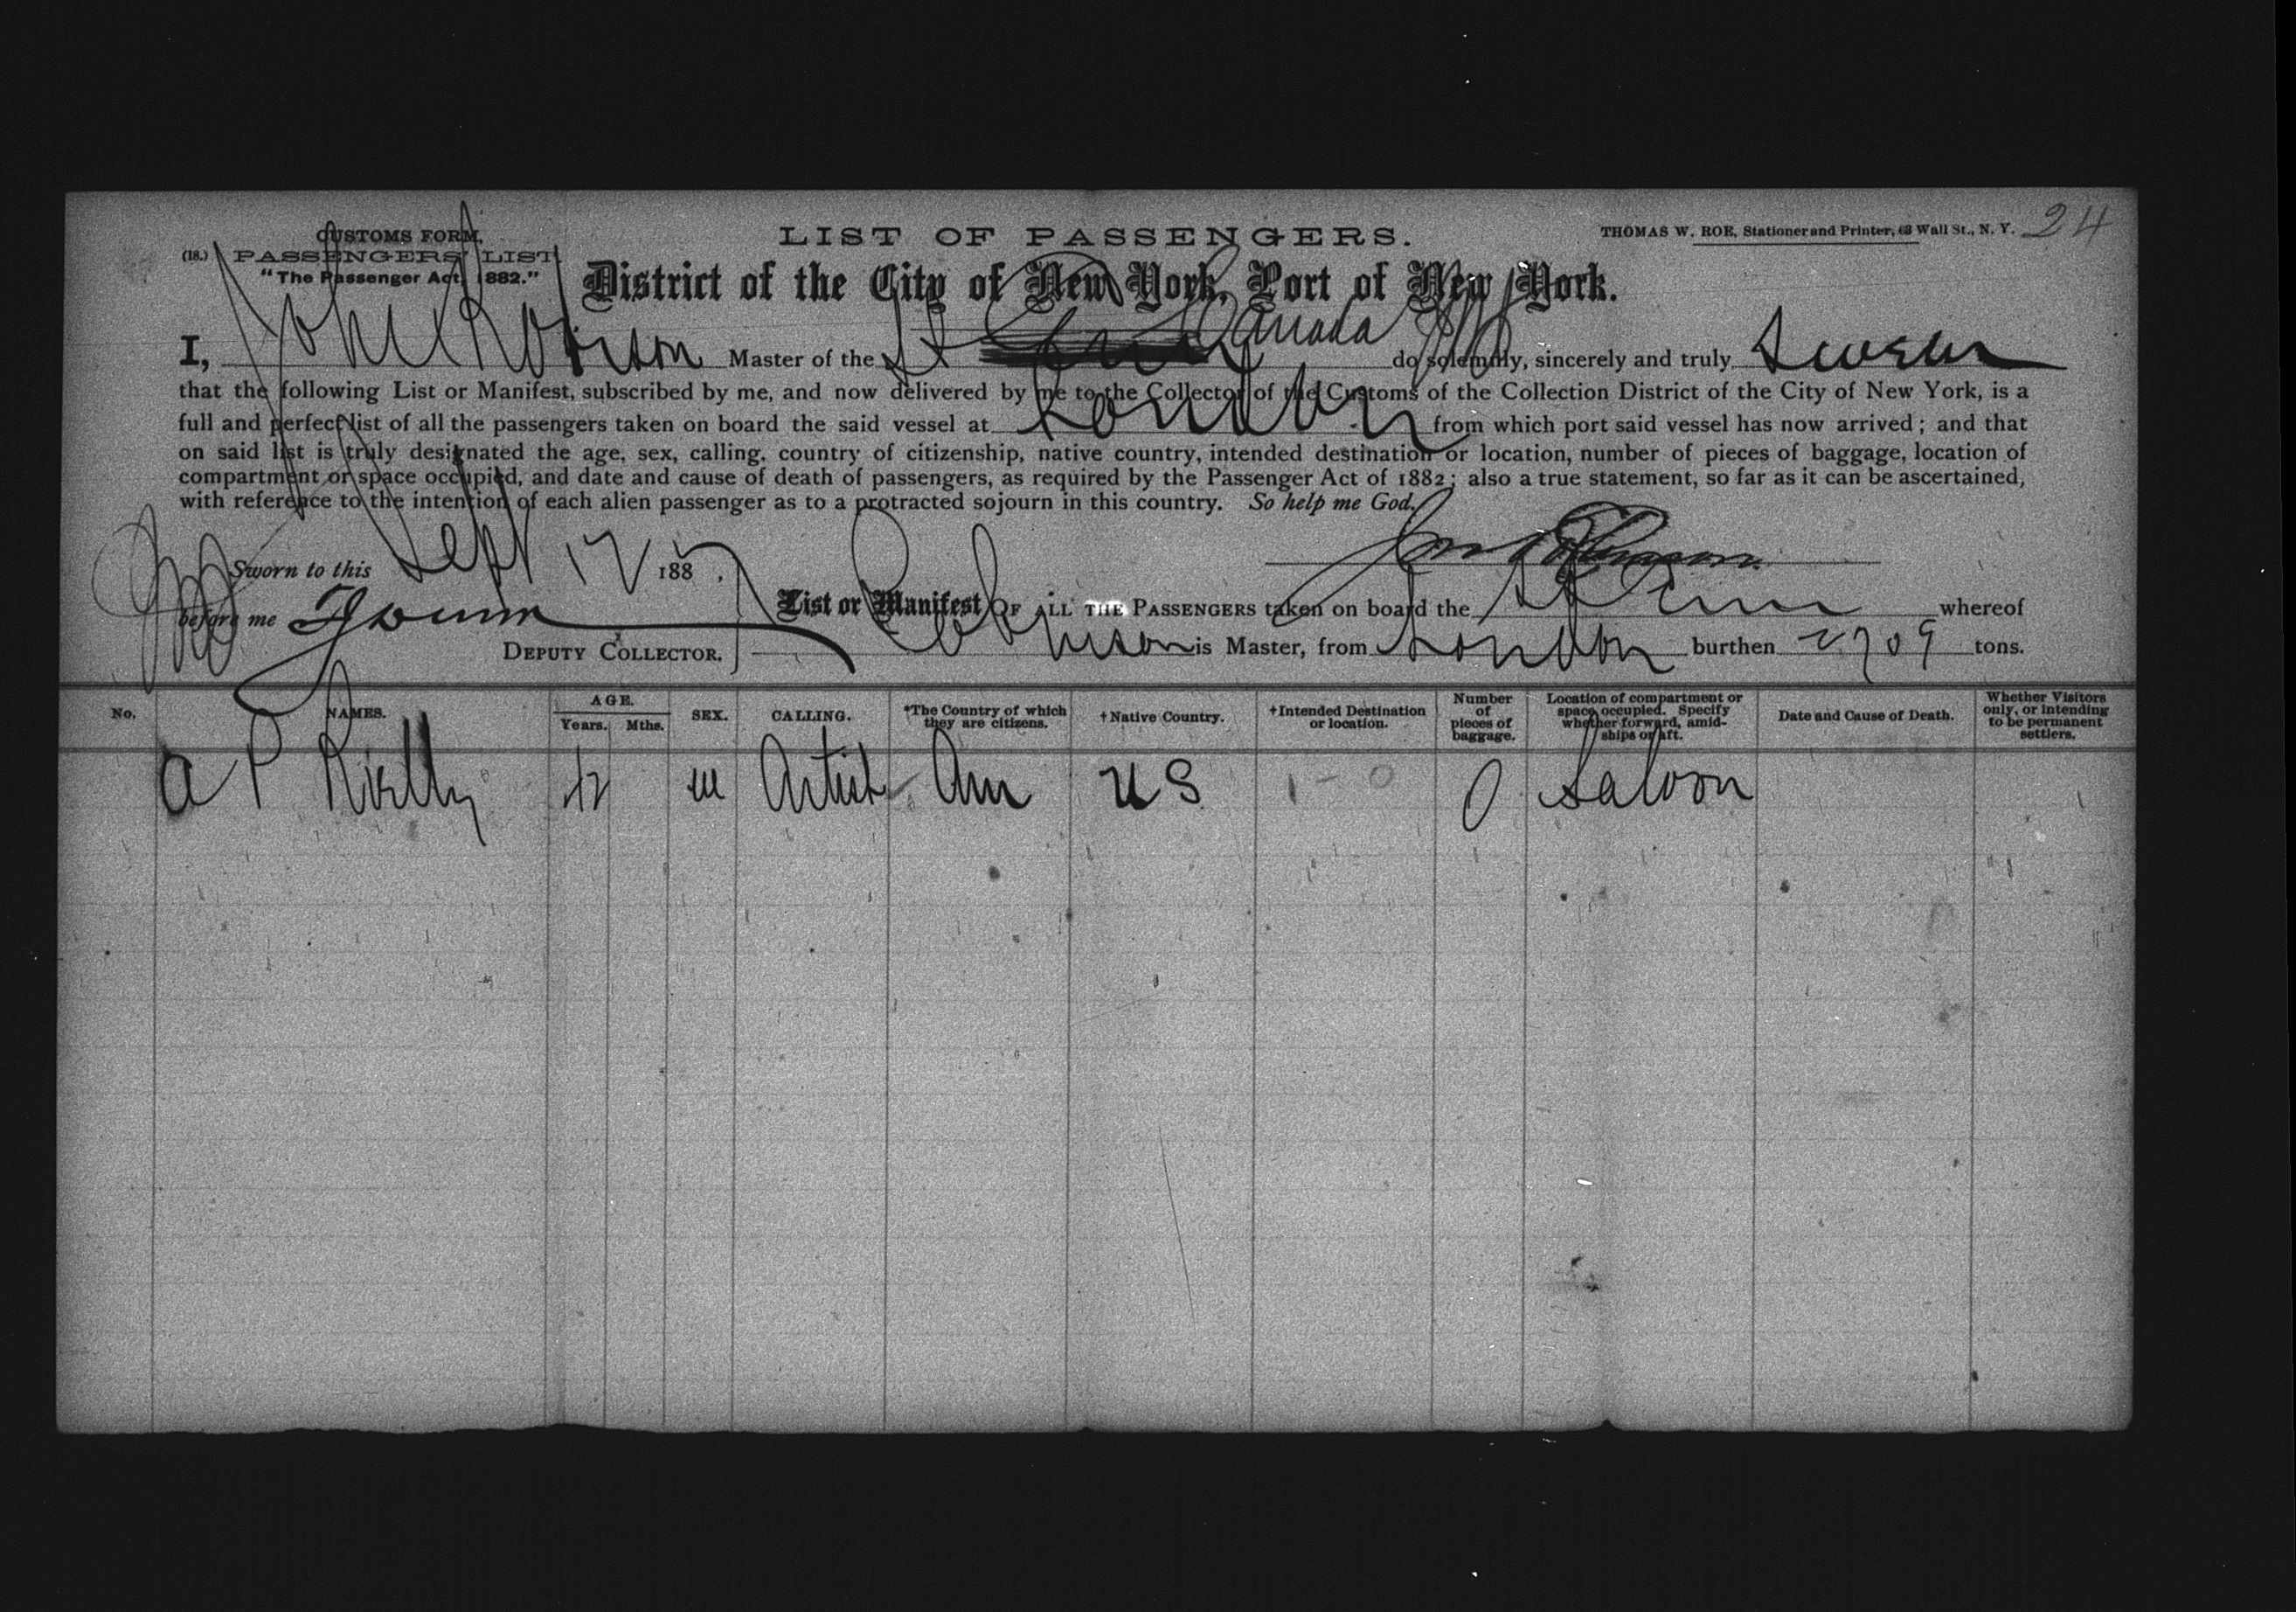 CUSTOMS FORM,
(18.) PASSENGERS' LIST
"The Passenger Act, 1882."
LIST OF PASSENGERS.
THOMAS W. ROE, Stationer and Printer, 63 Wall St., N. Y.
24
District of the City of New York, Port of New York.
I, John Robinson Master of the SS Canada do solemnly, sincerely and truly Swear
that the following List or Manifest, subscribed by me, and now delivered by me to the Collector of the Customs of the Collection District of the City of New York, is a
full and perfect list of all the passengers taken on board the said vessel at London from which port said vessel has now arrived; and that
on said list is truly designated the age, sex, calling, country of citizenship, native country, intended destination or location, number of pieces of baggage, location of
compartment or space occupied, and date and cause of death of passengers, as required by the Passenger Act of 1882; also a true statement, so far as it can be ascertained,
with reference to the intention of each alien passenger as to a protracted sojourn in this country. So help me God.
Sworn to this Sept 17 188
before me
DEPUTY COLLECTOR.
List or Manifest OF ALL THE PASSENGERS taken on board the whereof
Robinson is Master, from London burthen 2909 tons.
No. NAMES. AGE. Years. Mths. SEX. CALLING. *The Country of which they are citizens. †Native Country. †Intended Destination or location. Number of pieces of baggage. Location of compartment or space occupied. Specify whether forward, amidships or aft. Date and Cause of Death. Whether Visitors only, or intending to be permanent settlers.
A P Rielly m Artist Am U S 1 - 0 0 Saloon